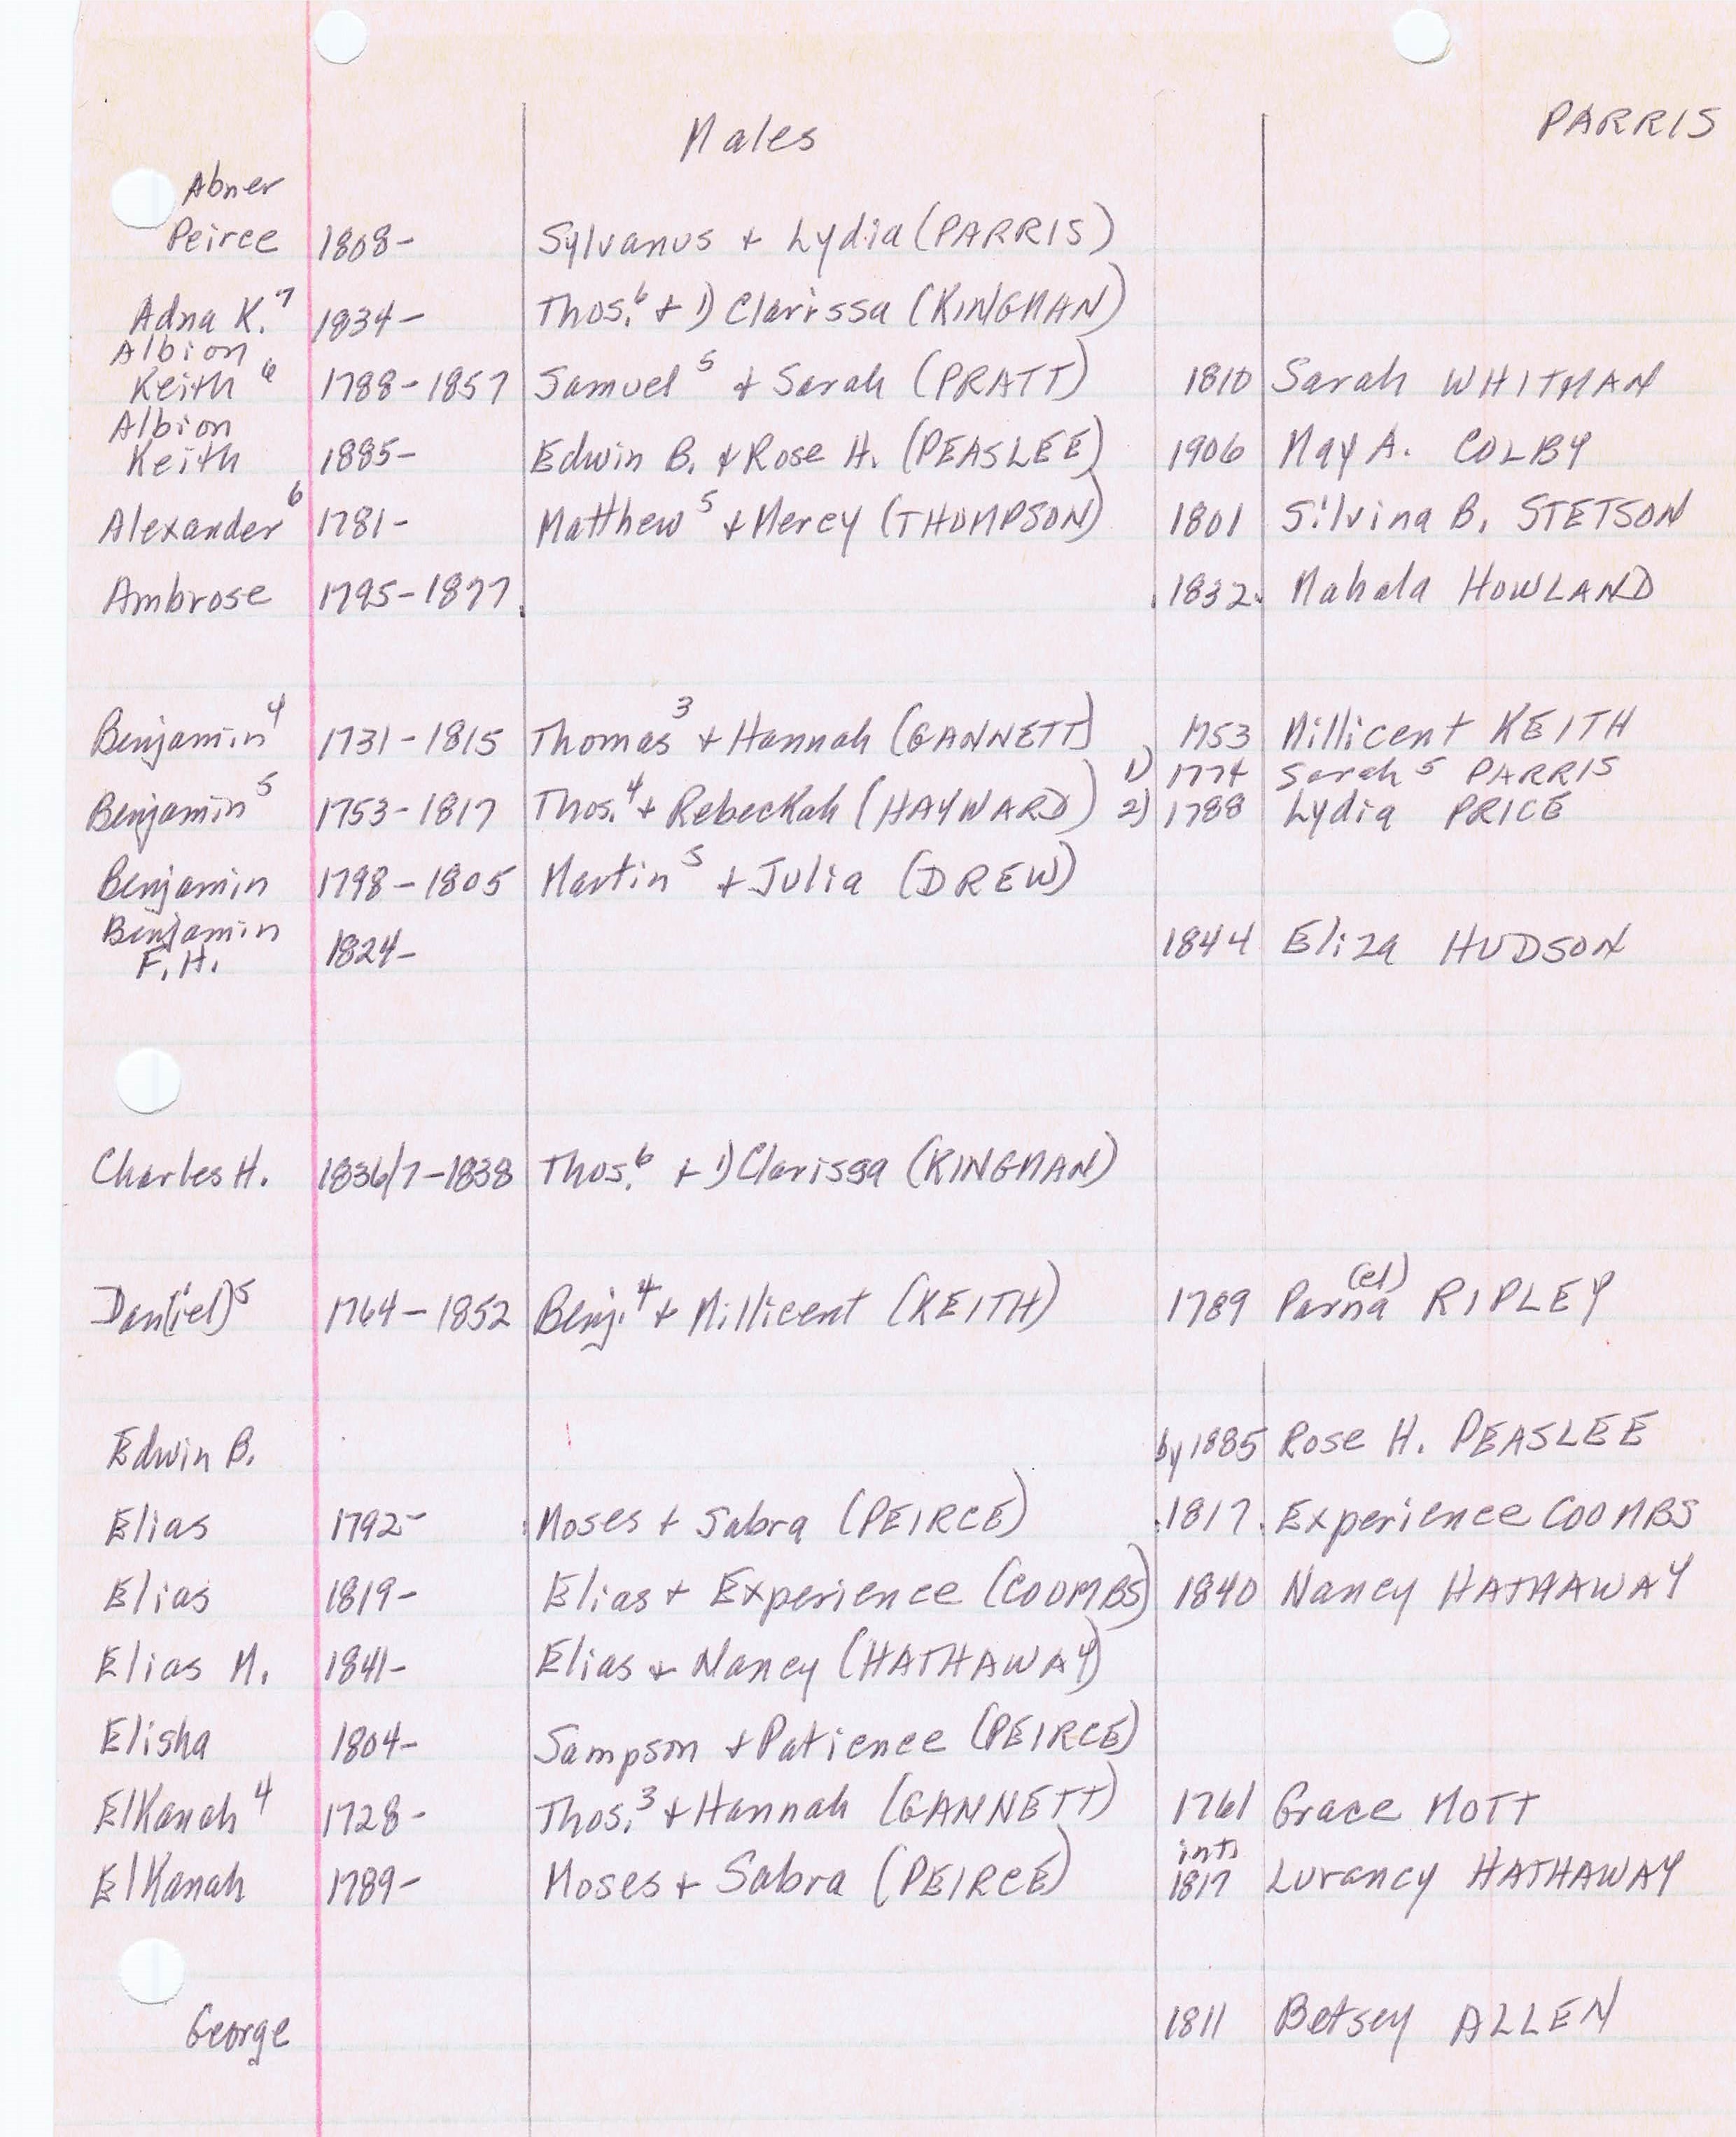 Males PARRIS
Abner
Peirce 1808- Sylvanus + Lydia (PARRIS)
Adna K.⁷ 1834- Thos.⁶ + 1) Clarissa (KINGMAN)
Albion
Keith⁶ 1788-1857 Samuel⁵ + Sarah (PRATT) 1810 Sarah WHITMAN
Albion
Keith 1885- Edwin B. + Rose H. (PEASLEE) 1906 May A. COLBY
Alexander⁶ 1781- Matthew⁵ + Mercy (THOMPSON) 1801 Silvina B. STETSON
Ambrose 1795-1877 1832 Mahala HOWLAND
Benjamin⁴ 1731-1815 Thomas³ + Hannah (GANNETT) 1753 Millicent KEITH
1) 1774 Sarah⁵ PARRIS
Benjamin⁵ 1753-1817 Thos.⁴ + Rebeckah (HAYWARD) 2) 1788 Lydia PRICE
Benjamin 1798-1805 Martin⁵ + Julia (DREW)
Benjamin
F. H. 1824- 1844 Eliza HUDSON
Charles H. 1836/7-1838 Thos.⁶ + 1) Clarissa (KINGMAN)
Dan(iel)⁵ 1764-1852 Benj.⁴ + Millicent (KEITH) 1789 Parna(el) RIPLEY
Edwin B. by 1885 Rose H. PEASLEE
Elias 1792- Moses + Sabra (PEIRCE) 1817 Experience COOMBS
Elias 1819- Elias + Experience (COOMBS) 1840 Nancy HATHAWAY
Elias M. 1841- Elias + Nancy (HATHAWAY)
Elisha 1804- Sampson + Patience (PEIRCE)
Elkanah⁴ 1728- Thos.³ + Hannah (GANNETT) 1761 Grace MOTT
int.
Elkanah 1789- Moses + Sabra (PEIRCE) 1817 Lurancy HATHAWAY
George 1811 Betsey ALLEN